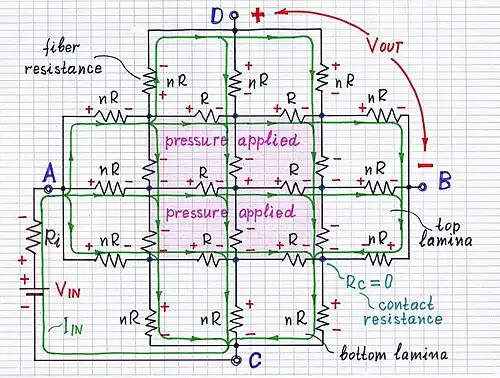 D +
VOUT
fiber
resistance
nR nR nR
nR R R nR
pressure applied
A
nR R R nR
B
pressure applied
Ri
nR R R nR
top
lamina
VIN
RC = 0
contact
resistance
IIN
nR nR nR
bottom lamina
C